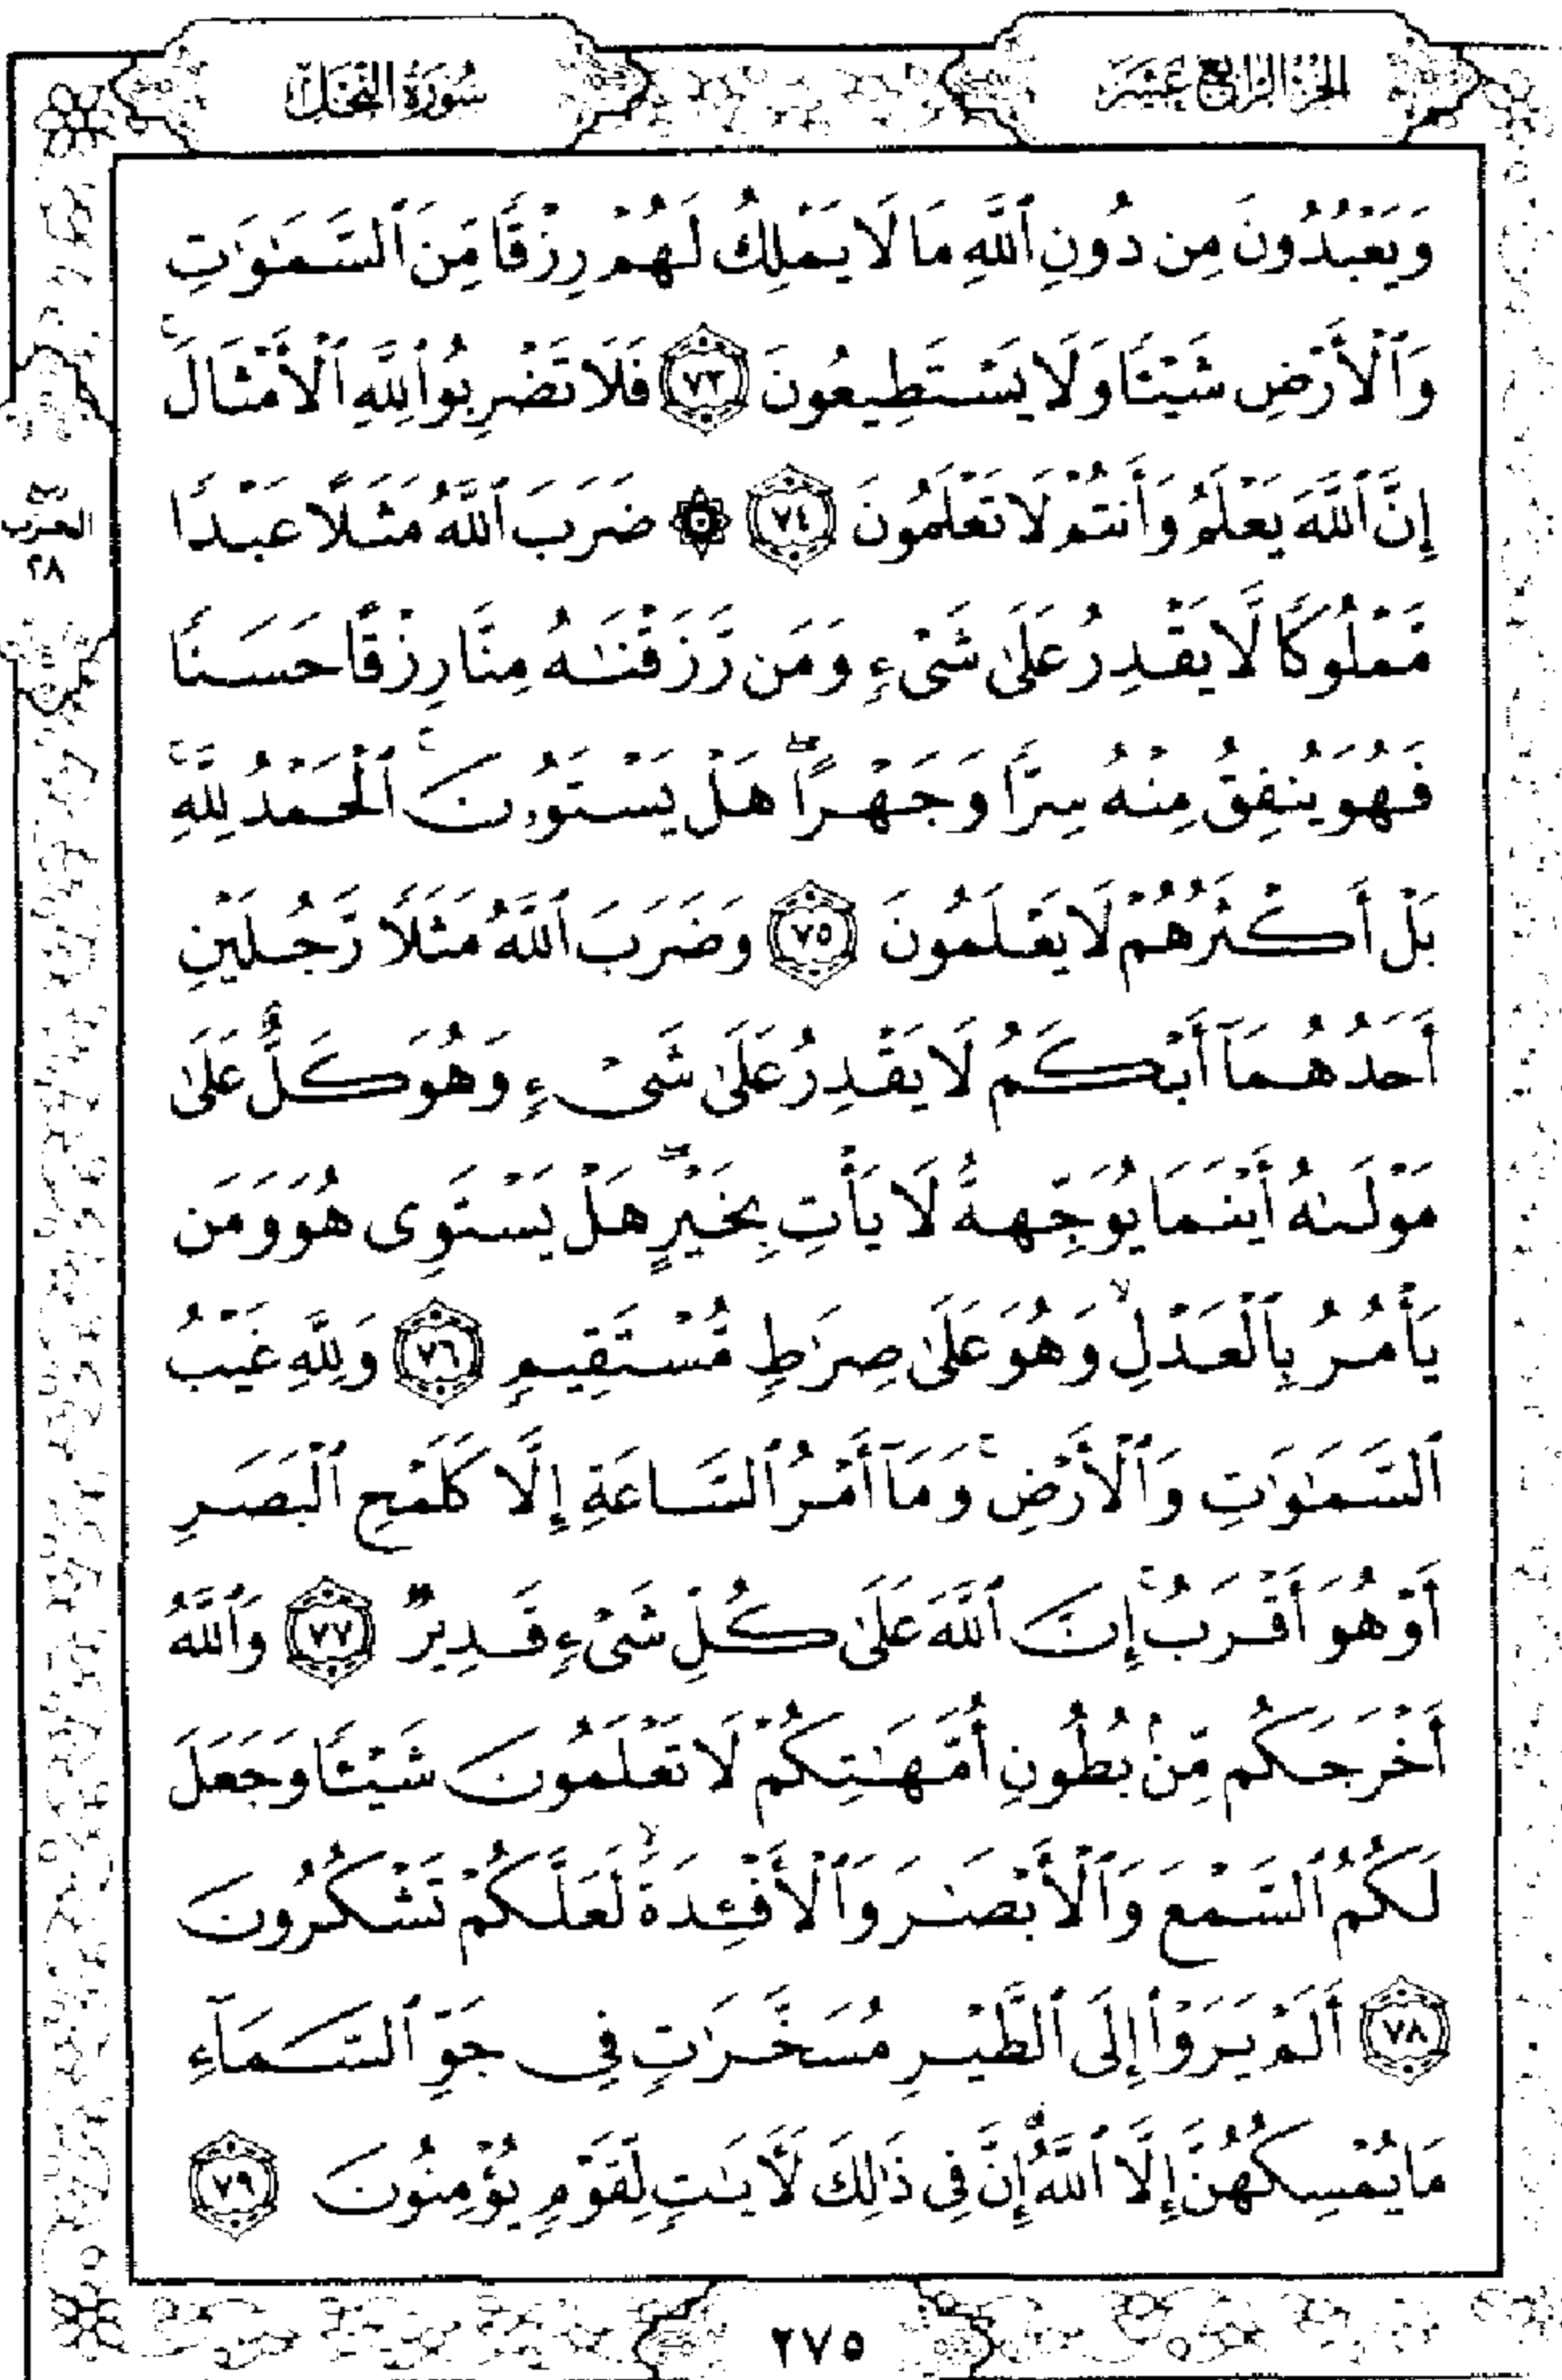 الجزء الرابع عشر
سورة النحل
وَيَعْبُدُونَ مِن دُونِ ٱللَّهِ مَا لَا يَمْلِكُ لَهُمْ رِزْقًا مِّنَ ٱلسَّمَٰوَٰتِ
وَٱلْأَرْضِ شَيْـًٔا وَلَا يَسْتَطِيعُونَ ٧٣ فَلَا تَضْرِبُوا۟ لِلَّهِ ٱلْأَمْثَالَ ۚ
إِنَّ ٱللَّهَ يَعْلَمُ وَأَنتُمْ لَا تَعْلَمُونَ ٧٤ ۞ ضَرَبَ ٱللَّهُ مَثَلًا عَبْدًا
مَّمْلُوكًا لَّا يَقْدِرُ عَلَىٰ شَىْءٍ وَمَن رَّزَقْنَٰهُ مِنَّا رِزْقًا حَسَنًا
فَهُوَ يُنفِقُ مِنْهُ سِرًّا وَجَهْرًا ۖ هَلْ يَسْتَوُۥنَ ۚ ٱلْحَمْدُ لِلَّهِ ۚ
بَلْ أَكْثَرُهُمْ لَا يَعْلَمُونَ ٧٥ وَضَرَبَ ٱللَّهُ مَثَلًا رَّجُلَيْنِ
أَحَدُهُمَآ أَبْكَمُ لَا يَقْدِرُ عَلَىٰ شَىْءٍ وَهُوَ كَلٌّ عَلَىٰ
مَوْلَىٰهُ أَيْنَمَا يُوَجِّههُّ لَا يَأْتِ بِخَيْرٍ ۖ هَلْ يَسْتَوِى هُوَ وَمَن
يَأْمُرُ بِٱلْعَدْلِ ۙ وَهُوَ عَلَىٰ صِرَٰطٍ مُّسْتَقِيمٍ ٧٦ وَلِلَّهِ غَيْبُ
ٱلسَّمَٰوَٰتِ وَٱلْأَرْضِ ۚ وَمَآ أَمْرُ ٱلسَّاعَةِ إِلَّا كَلَمْحِ ٱلْبَصَرِ
أَوْ هُوَ أَقْرَبُ ۚ إِنَّ ٱللَّهَ عَلَىٰ كُلِّ شَىْءٍ قَدِيرٌ ٧٧ وَٱللَّهُ
أَخْرَجَكُم مِّنۢ بُطُونِ أُمَّهَٰتِكُمْ لَا تَعْلَمُونَ شَيْـًٔا وَجَعَلَ
لَكُمُ ٱلسَّمْعَ وَٱلْأَبْصَٰرَ وَٱلْأَفْـِٔدَةَ ۙ لَعَلَّكُمْ تَشْكُرُونَ
٧٨ أَلَمْ يَرَوْا۟ إِلَى ٱلطَّيْرِ مُسَخَّرَٰتٍ فِى جَوِّ ٱلسَّمَآءِ
مَا يُمْسِكُهُنَّ إِلَّا ٱللَّهُ ۗ إِنَّ فِى ذَٰلِكَ لَـَٔايَٰتٍ لِّقَوْمٍ يُؤْمِنُونَ ٧٩
الحزب
٢٨
٢٧٥